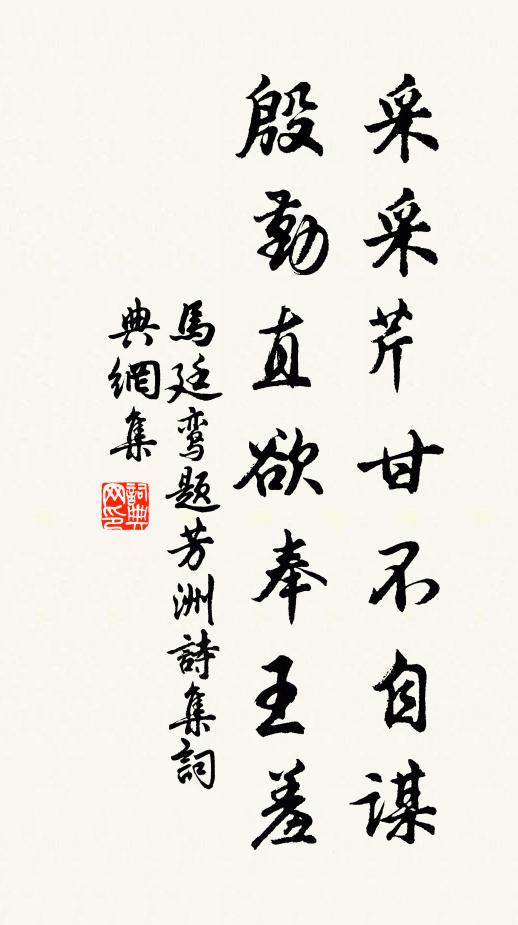 采采芹甘不自謀
殷勤直欲奉王羞
馬廷鸾题芳洲詩集詞
典網集
詞典网印